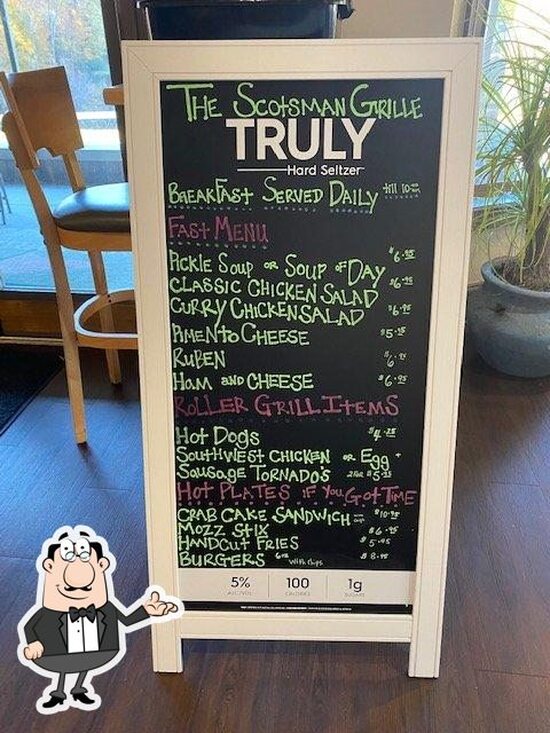 The Scotsman Grille
TRULY
Hard Seltzer
Breakfast Served Daily till 10
Fast Menu
Pickle Soup or Soup of Day $6.95
Classic Chicken Salad $6.95
Curry Chicken Salad $6.95
Pimento Cheese $5.95
Ruben
Ham and Cheese $6.95
Roller Grill Items
Hot Dogs $4.25
Southwest Chicken or Egg +
Sausage Tornado's 2 for $5
Hot Plates if You Got Time
Crab Cake Sandwich $10.95
Mozz Stix $6.95
HandCut Fries $5.95
Burgers 6oz with chips $8.95
5% 100 1g
ALC/VOL CALORIES SUGARS